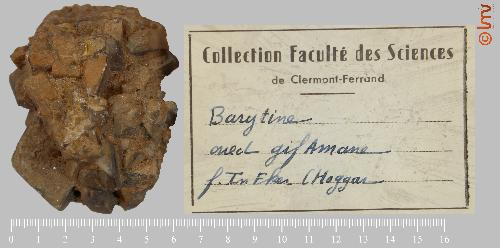 Collection Faculté des Sciences
de Clermont-Ferrand
Barytine
oued gif Amane
f. In Eker (Hoggar
0 1 2 3 4 5 6 7 8 9 10 11 12 13 14 15 16